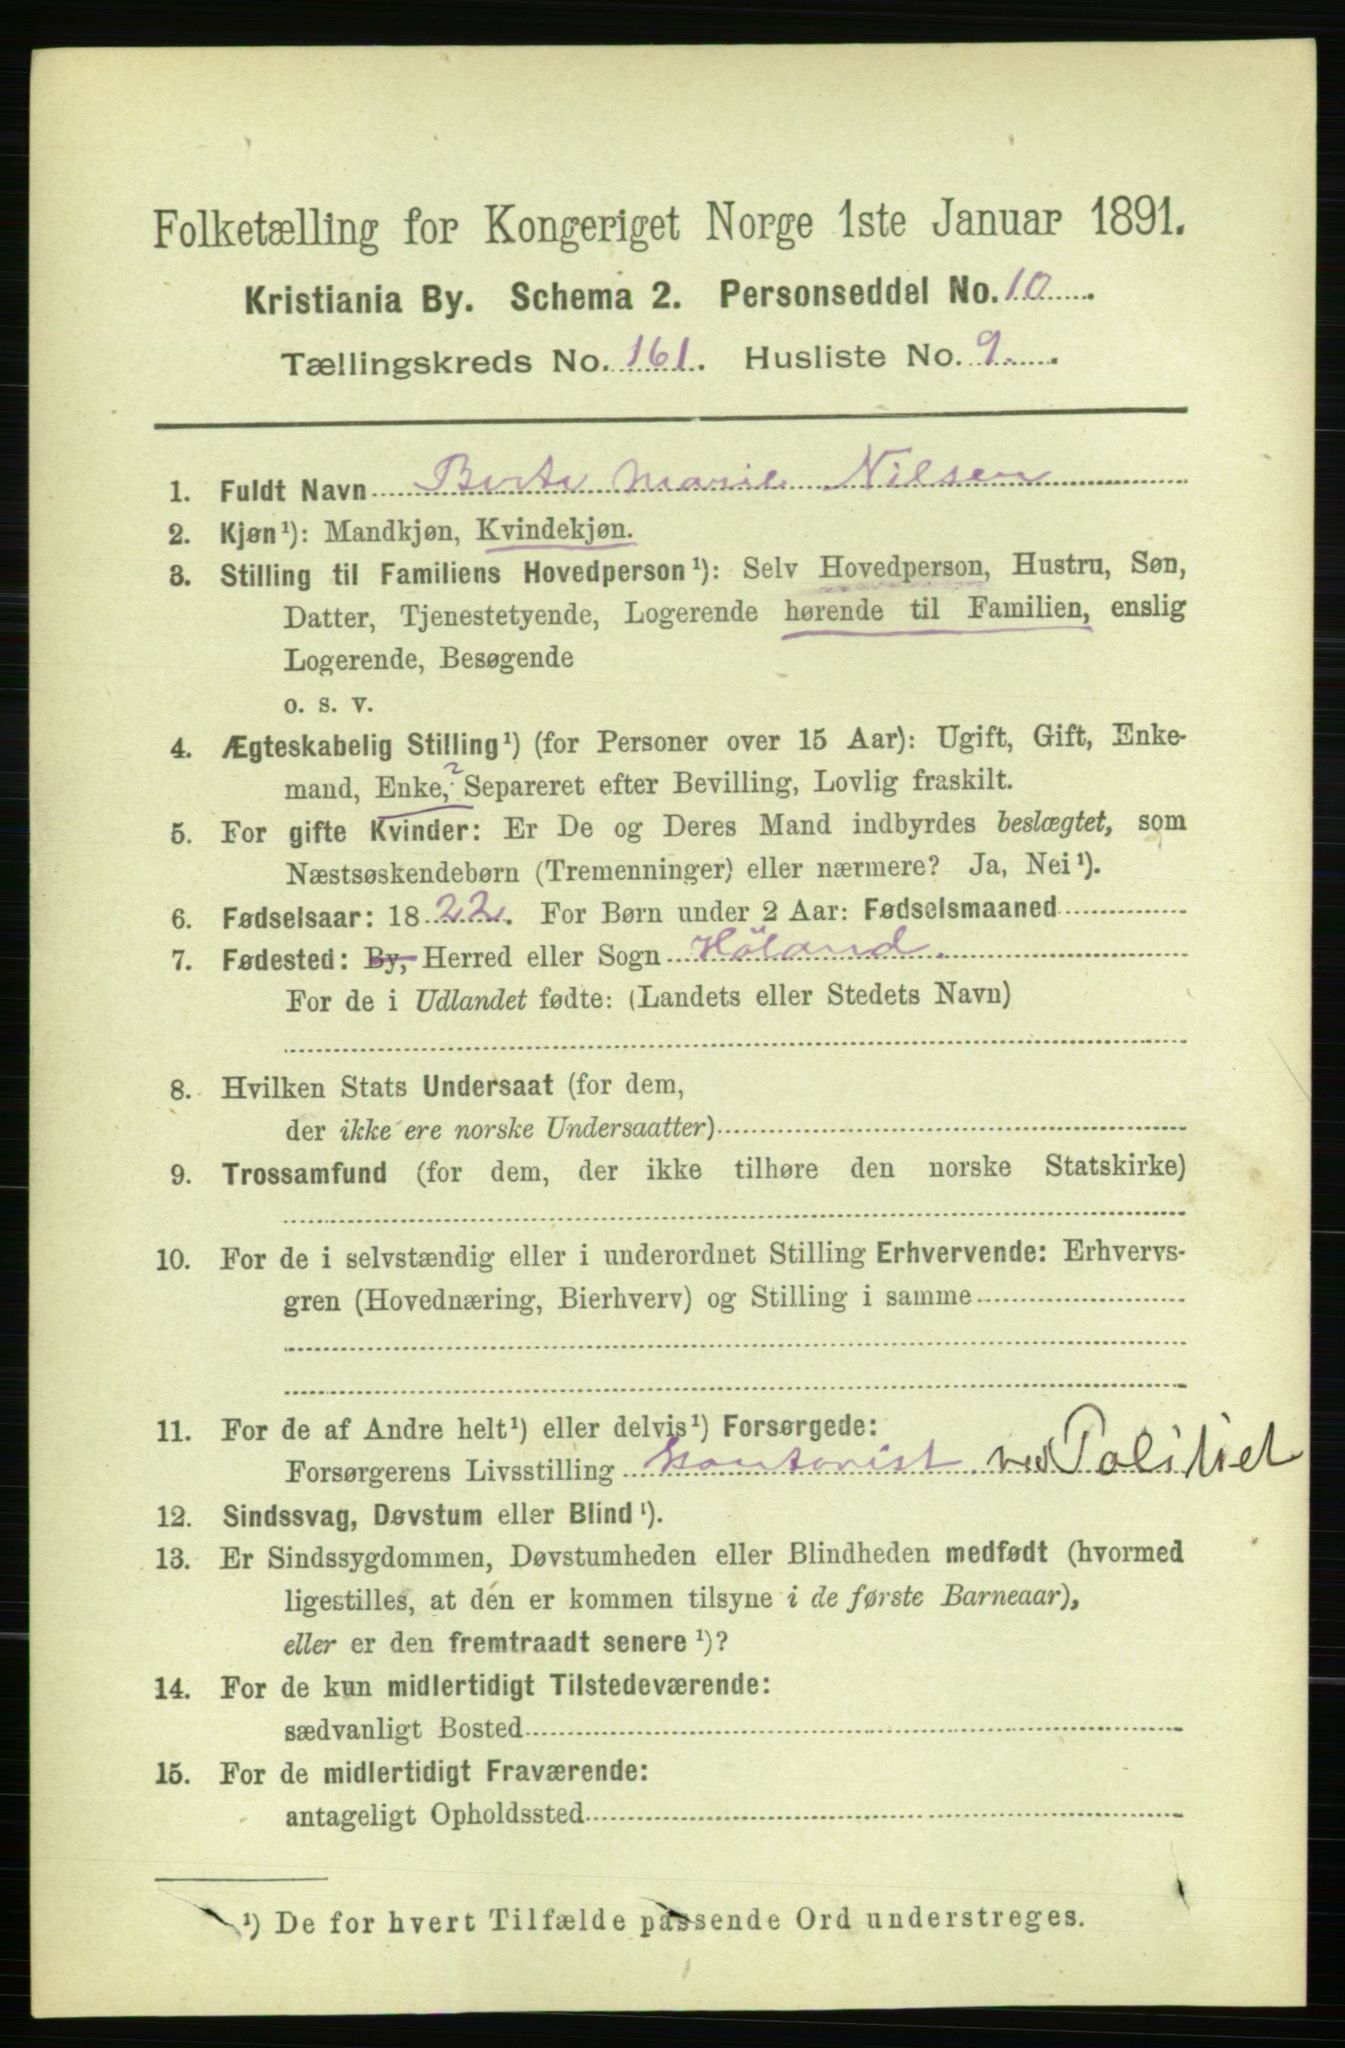 Folketælling for Kongeriget Norge 1ste Januar 1891.
Kristiania By. Schema 2. Personseddel No. 10
Tællingskreds No. 161. Husliste No. 9.
1. Fuldt Navn Berte Marie Nilsen
2. Kjøn¹): Mandkjøn, Kvindekjøn.
3. Stilling til Familiens Hovedperson¹): Selv Hovedperson, Hustru, Søn,
Datter, Tjenestetyende, Logerende hørende til Familien, enslig
Logerende, Besøgende
o. s. v.
4. Ægteskabelig Stilling¹) (for Personer over 15 Aar): Ugift, Gift, Enke-
mand, Enke,² Separeret efter Bevilling, Lovlig fraskilt.
5. For gifte Kvinder: Er De og Deres Mand indbyrdes beslægtet, som
Næstsøskendebørn (Tremenninger) eller nærmere? Ja, Nei¹).
6. Fødselsaar: 1822. For Børn under 2 Aar: Fødselsmaaned
7. Fødested: By, Herred eller Sogn Höland.
For de i Udlandet fødte: (Landets eller Stedets Navn)
8. Hvilken Stats Undersaat (for dem,
der ikke ere norske Undersaatter)
9. Trossamfund (for dem, der ikke tilhøre den norske Statskirke)
10. For de i selvstændig eller i underordnet Stilling Erhvervende: Erhvervs-
gren (Hovednæring, Bierhverv) og Stilling i samme
11. For de af Andre helt¹) eller delvis¹) Forsørgede:
Forsørgerens Livsstilling Kontorist ved Politiet
12. Sindssvag, Døvstum eller Blind¹).
13. Er Sindssygdommen, Døvstumheden eller Blindheden medfødt (hvormed
ligestilles, at den er kommen tilsyne i de første Barneaar),
eller er den fremtraadt senere¹)?
14. For de kun midlertidigt Tilstedeværende:
sædvanligt Bosted
15. For de midlertidigt Fraværende:
antageligt Opholdssted
¹) De for hvert Tilfælde passende Ord understreges.